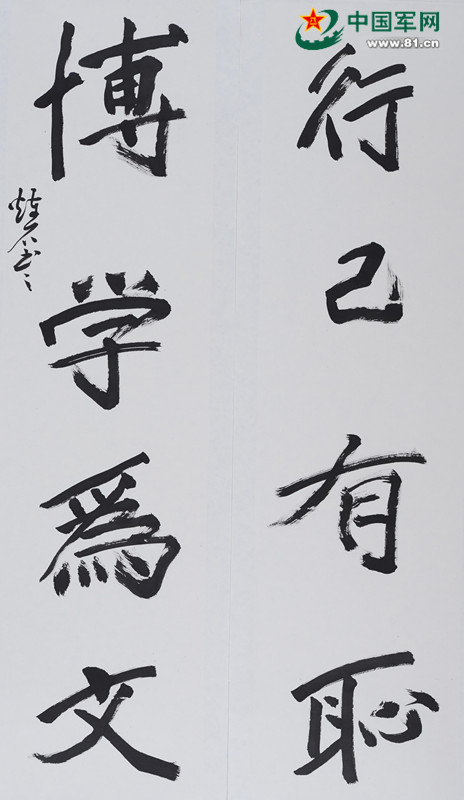 中国军网
www.81.cn
行己有恥
博学爲文